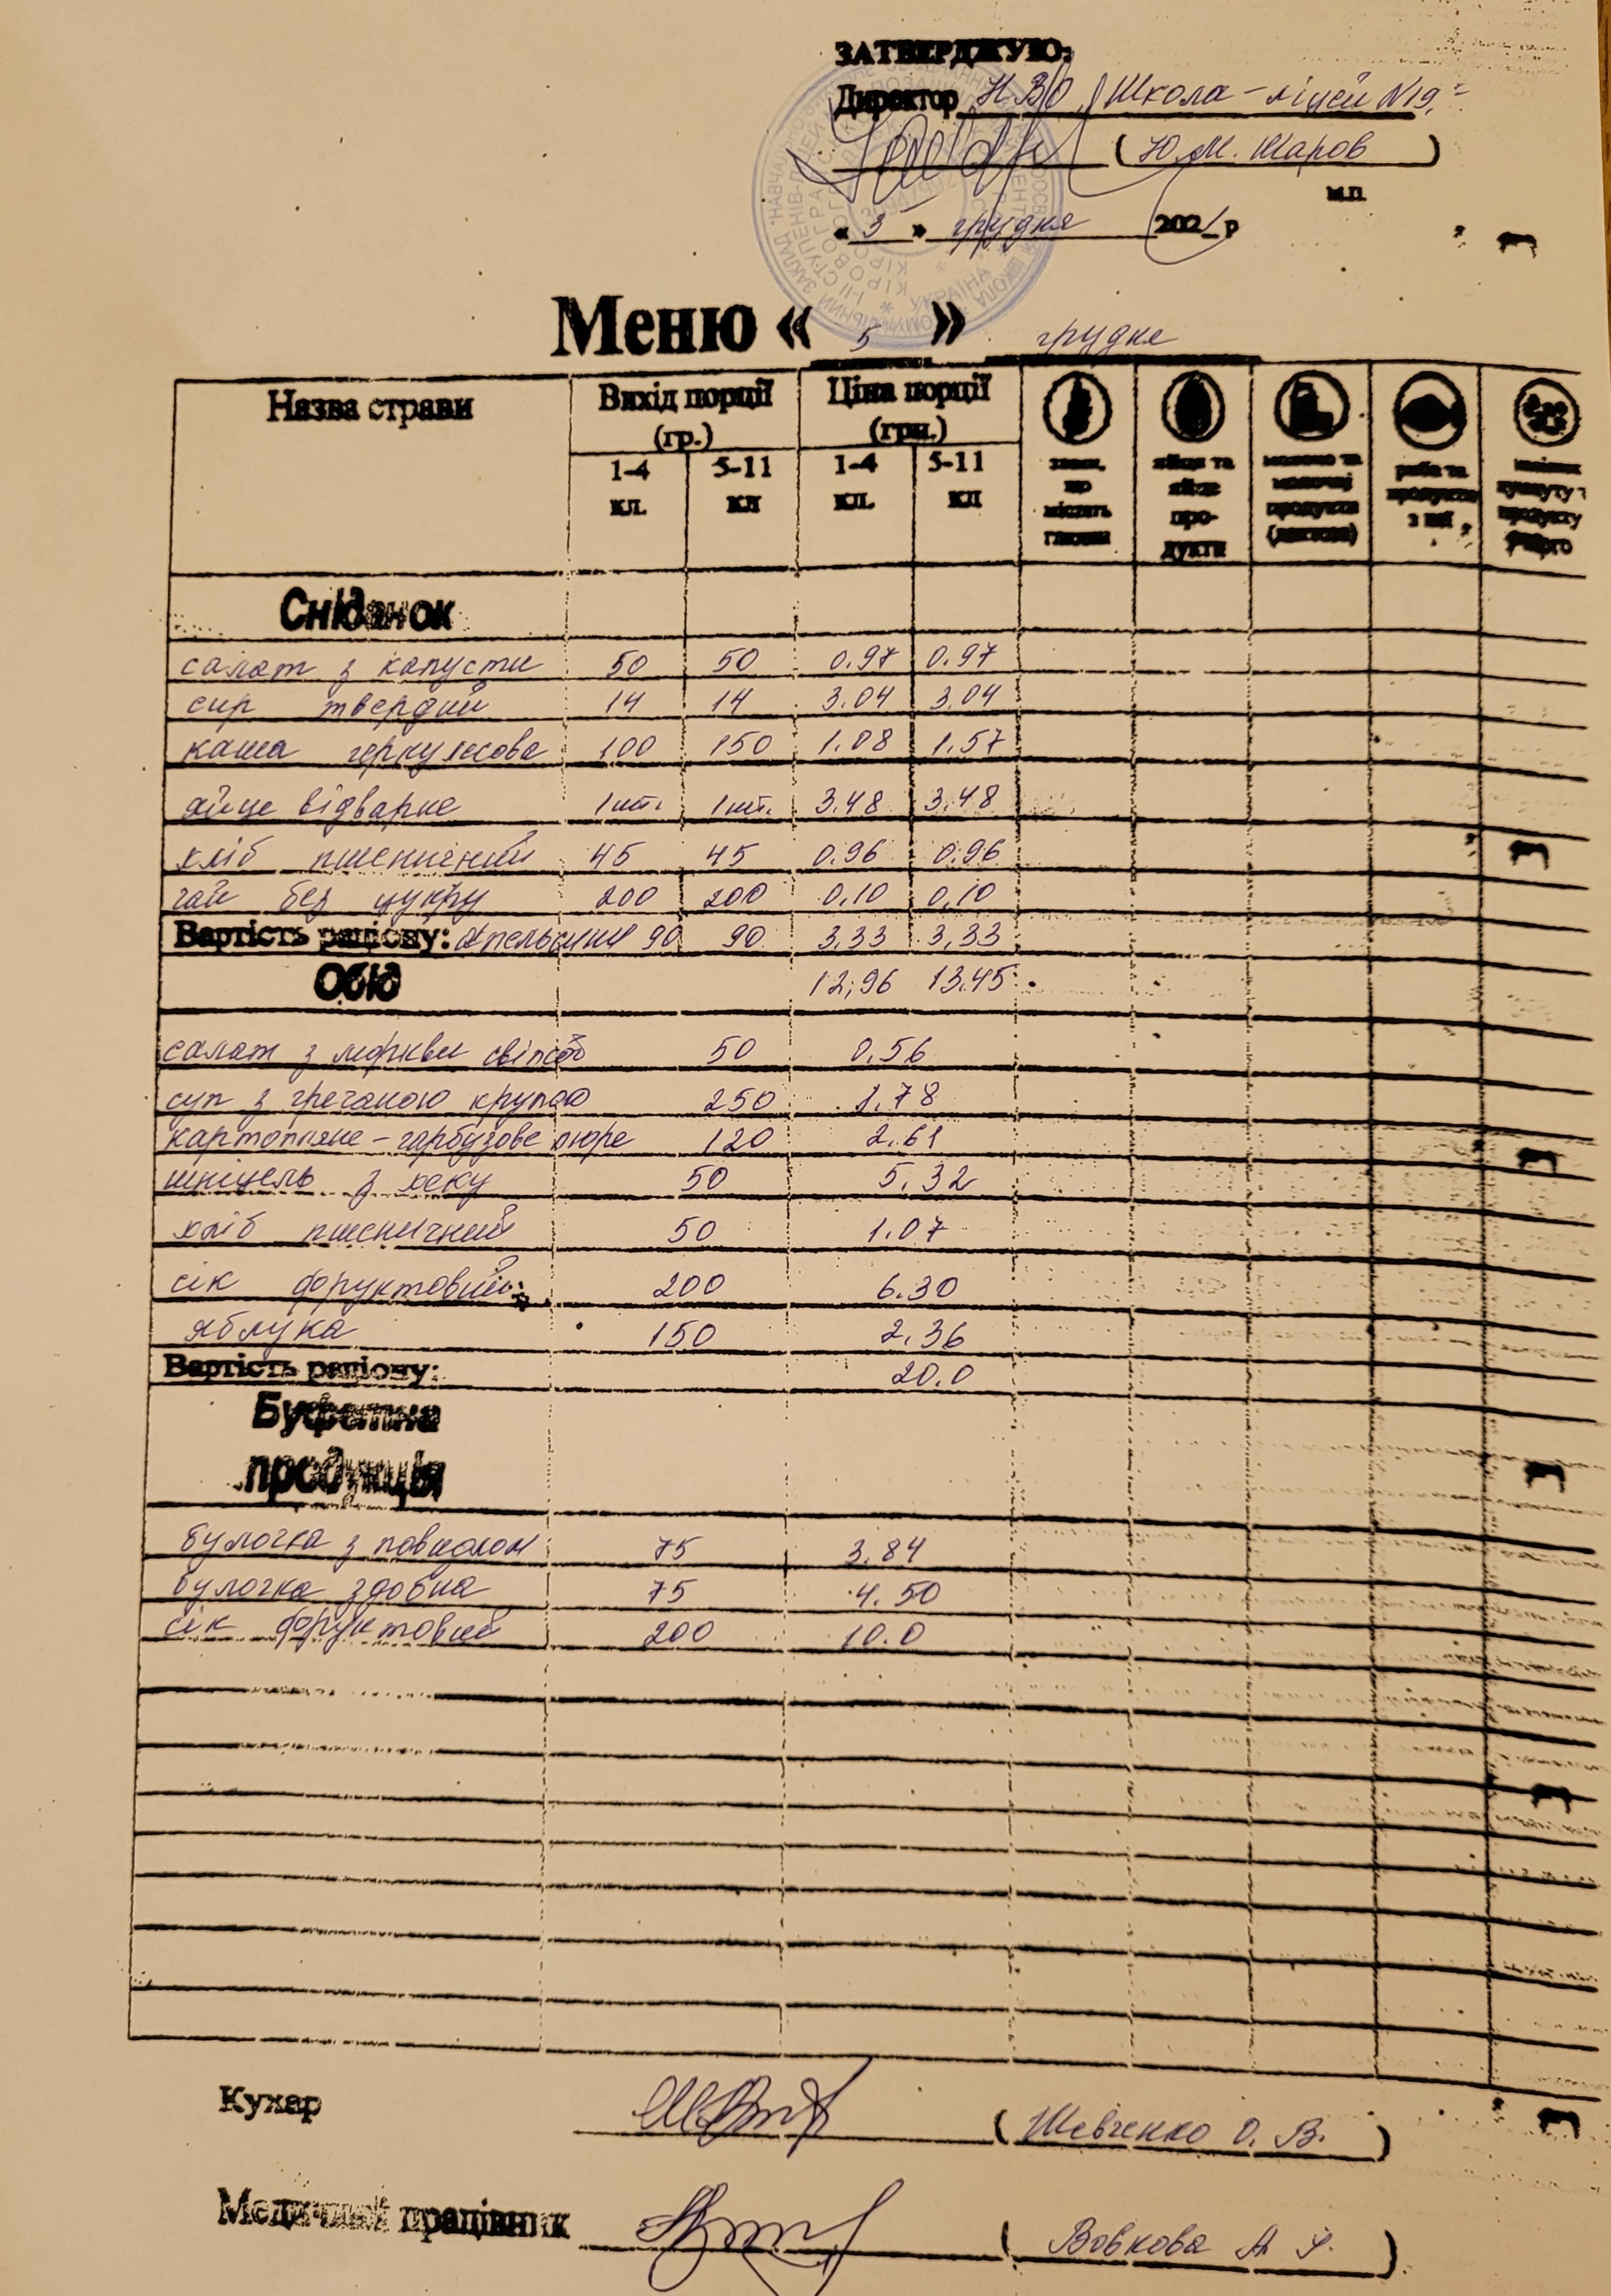 ЗАТВЕРДЖУЮ:
Директор НВО "Школа-ліцей №19"
(Ю.М. Жаров)
м.п.
« 3 » грудня 202 р
Меню « 5 » грудня
Назва страви Вихід порції (гр.) Ціна порції (грн.)
1-4 кл. 5-11 кл 1-4 кл. 5-11 кл
злаки, що містять глютен
яйця та яйце про-дукти
молоко та молочні продукти (лактоза)
риба та продукти з неї
Сніданок
салат з капусти 50 50 0.97 0.97
сир твердий 14 14 3.04 3.04
каша геркулесова 100 150 1.08 1.57
яйце відварне 1шт. 1шт. 3.48 3.48
хліб пшеничний 45 45 0.96 0.96
чай без цукру 200 200 0.10 0.10
Вартість раціону: апельсини 90 90 3.33 3.33
Обід 12,96 13.45
салат з моркви 50 0.56
суп з гречаною крупою 250 1.78
картопляне-гарбузове пюре 120 2.61
шніцель з хеку 50 5.32
хліб пшеничний 50 1.07
сік фруктовий 200 6.30
яблука 150 2.36
Вартість раціону: 20.0
Буфетна
продукція
булочка з повидлом 75 3.84
булочка здобна 75 4.50
сік фруктовий 200 10.0
Кухар (Шевченко О. В.)
Медичний працівник (Вовкова А)